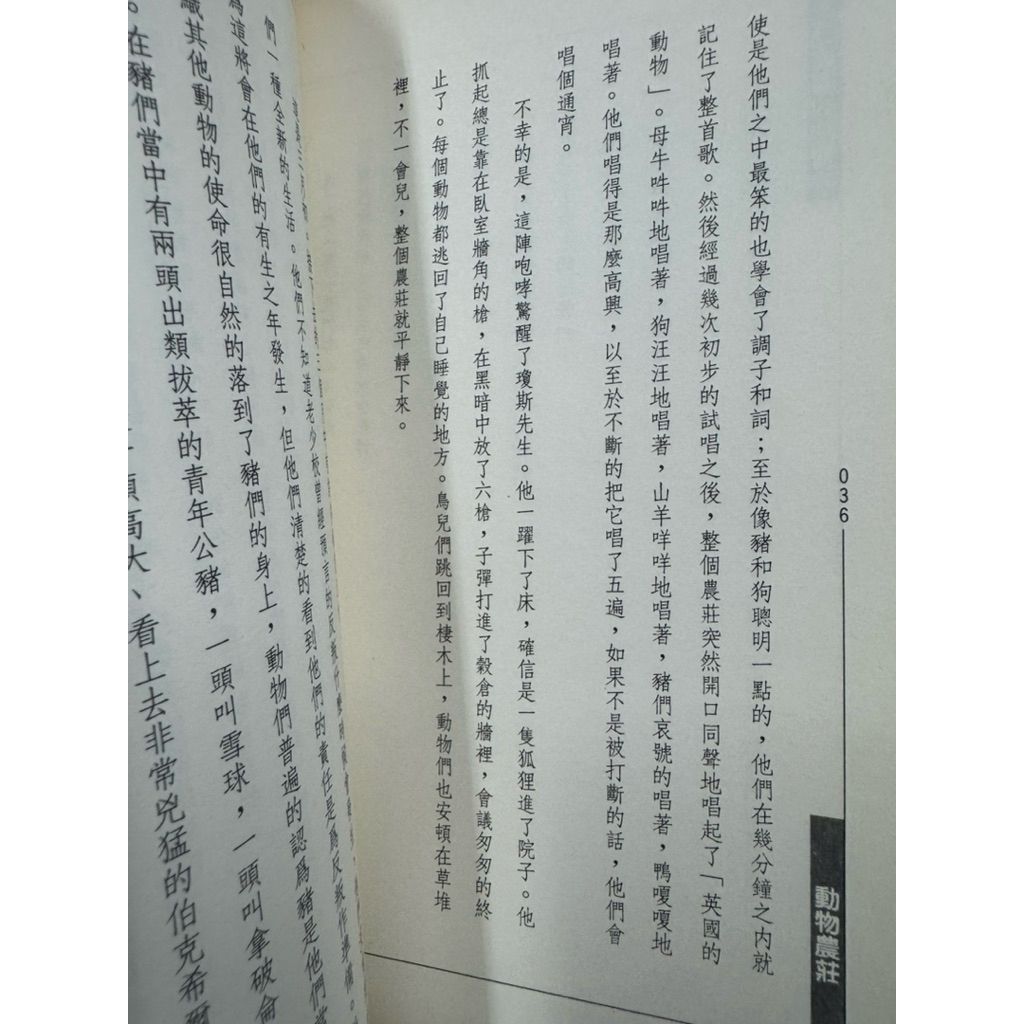 036
動物農莊
使是他們之中最笨的也學會了調子和詞；至於像豬和狗聰明一點的，他們在幾分鐘之內就
記住了整首歌。然後經過幾次初步的試唱之後，整個農莊突然開口同聲地唱起了「英國的
動物」。母牛吽吽地唱著，狗汪汪地唱著，山羊咩咩地唱著，豬們哀號的唱著，鴨嗄嗄地
唱著。他們唱得是那麼高興，以至於不斷的把它唱了五遍，如果不是被打斷的話，他們會
唱個通宵。
不幸的是，這陣咆哮驚醒了瓊斯先生。他一躍下了床，確信是一隻狐狸進了院子。他
抓起總是靠在臥室牆角的槍，在黑暗中放了六槍，子彈打進了穀倉的牆裡，會議匆匆的終
止了。每個動物都逃回了自己睡覺的地方。鳥兒們跳回到棲木上，動物們也安頓在草堆
裡，不一會兒，整個農莊就平靜下來。
們一種全新的生活。他們不知道老少校曾經預言的反叛什麼時候會
為這將會在他們的有生之年發生，但他們清楚的看到他們的責任是為反叛作準備。
織其他動物的使命很自然的落到了豬們的身上，動物們普遍的認為豬是他們當
。在豬們當中有兩頭出類拔萃的青年公豬，一頭叫雪球，一頭叫拿破侖
頭高大、看上去非常兇猛的伯克希爾